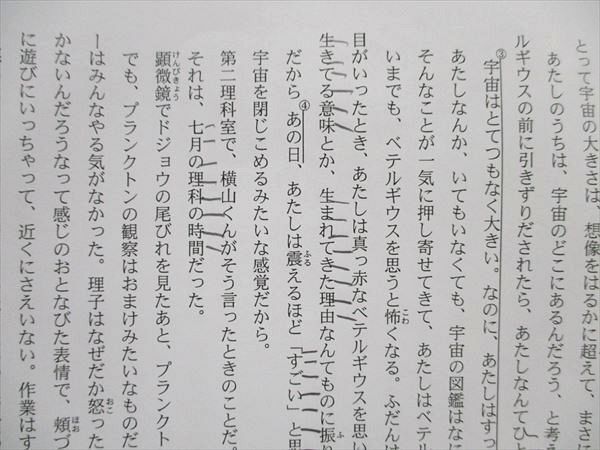 とって宇宙の大きさは、想像をはるかに超えて、まさに
あたしのうちは、宇宙のどこにあるんだろう、と考え
ルギウスの前に引きずりだされたら、あたしなんてひと
③宇宙はとてつもなく大きい。なのに、あたしはすっ
あたしなんか、いてもいなくても、宇宙の図鑑はなに
そんなことが一気に押し寄せてきて、あたしはベテル
いまでも、ベテルギウスを思うと怖くなる。ふだんは
目がいったとき、あたしは真っ赤なベテルギウスを思い
生きてる意味とか、生まれてきた理由なんてものに振り
だから④あの日、あたしは震えるほど「すごい」と思
宇宙を閉じこめるみたいな感覚だから。
第二理科室で、横山くんがそう言ったときのことだ。
それは、七月の理科の時間だった。
顕微鏡でドジョウの尾びれを見たあと、プランクト
でも、プランクトンの観察はおまけみたいなものだ
ーはみんなやる気がなかった。理子はなぜだか怒った
かないんだろうなって感じのおとなびた表情で、頬づ
に遊びにいっちゃって、近くにさえいない。作業はす